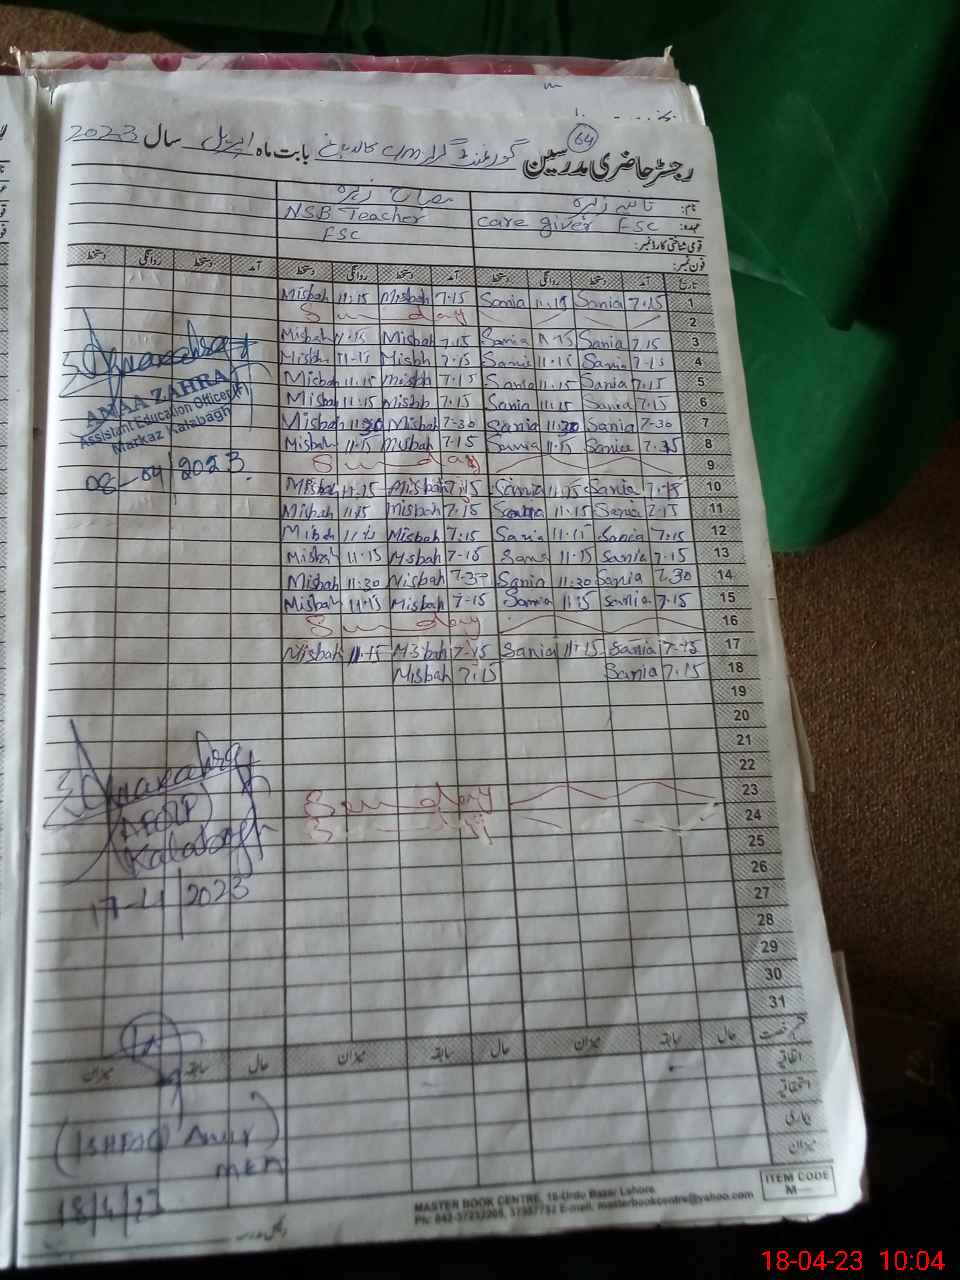 64
رجسٹر حاضری مدرسین گورنمنٹ گرلز C/M کالاباغ بابت ماہ اپریل سال 2023
نام: ثانیہ زہرہ مصباح زہرہ
عہدہ: care giver FSC NSB Teacher
FSC
قومی شناختی کارڈ نمبر:
فون نمبر:
تاریخ آمد دستخط روانگی دستخط آمد دستخط روانگی دستخط آمد دستخط روانگی دستخط
Misbah 11:15 Misbah 7.15 Sania 11.15 Sania 7.15 1
Sunday 2
Misbah 11.15 Misbah 7.15 Sania 11.15 Sania 7.15 3
Misbh 11.15 Misbh 7.15 Sania 11.15 Sania 7.15 4
Misbah 11.15 Misbh 7.15 Sania 11.15 Sania 7.15 5
Misbh 11.15 Misbh 7.15 Sania 11.15 Sania 7.15 6
Misbah 11.30 Misbah 7-30 Sania 11.30 Sania 7-30 7
Misbah 11.15 Misbah 7.15 Sania 11.15 Sania 7.15 8
Sunday 9
Misbah 11.15 Misbah 7.15 Sania 11.15 Sania 7.15 10
Misbah 11.15 Misbah 7.15 Sania 11.15 Sania 7.15 11
Misbah 11.15 Misbah 7.15 Sania 11.15 Sania 7.15 12
Misbah 11.15 Misbah 7-15 Sania 11.15 Sania 7.15 13
Misbah 11:30 Misbah 7.30 Sania 11:30 Sania 7.30 14
Misbah 11.15 Misbah 7-15 Sania 11.15 Sania 7.15 15
Sunday 16
Misbah 11.15 Misbah 7-15 Sania 11.15 Sania 7.15 17
Misbah 7.15 Sania 7.15 18
19
20
21
22
Sunday 23
24
25
26
27
28
29
30
31
AMAA ZAHRA
Assistant Education Officer (F)
Markaz Kalabagh
08-04/2023
Kalabagh
17-4/2023
قسم رخصت حال سابقہ میزان حال سابقہ میزان حال سابقہ میزان
اتفاقیہ
استحقاقیہ
بیماری
میزان
(ISHFAQ Amir)
18/4/23
ITEM CODE
M—
MASTER BOOK CENTRE, 18-Urdu Bazar Lahore
Ph: 042-37232205, 37357792 E-mail. masterbookcentre@yahoo.com
18-04-23 10:04